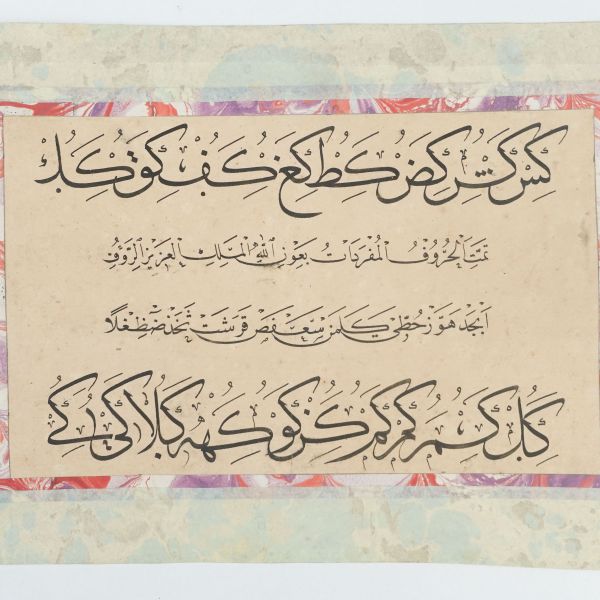 كس كض كط كف كق كك
تمت الحروف المفردات بعون الله الملك العزيز الرؤف
ابجد هوز حطي كلمن سعفص قرشت ثخذ ضظغلا
كل كم كم كن كو كه كلا كي